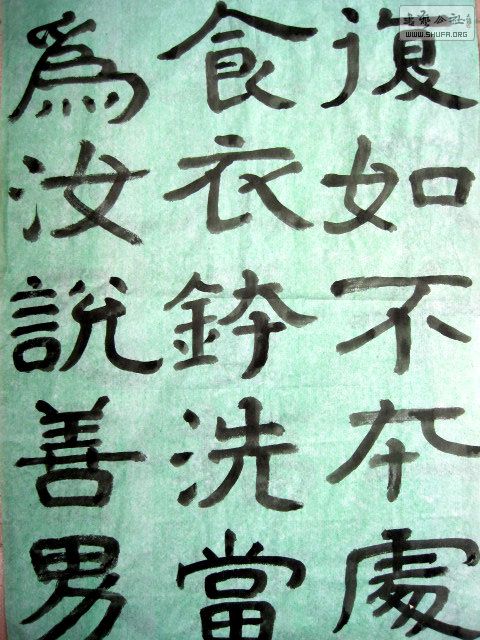 復如不本處
食衣鉢洗當
為汝說善男
WWW.SHUFA.ORG